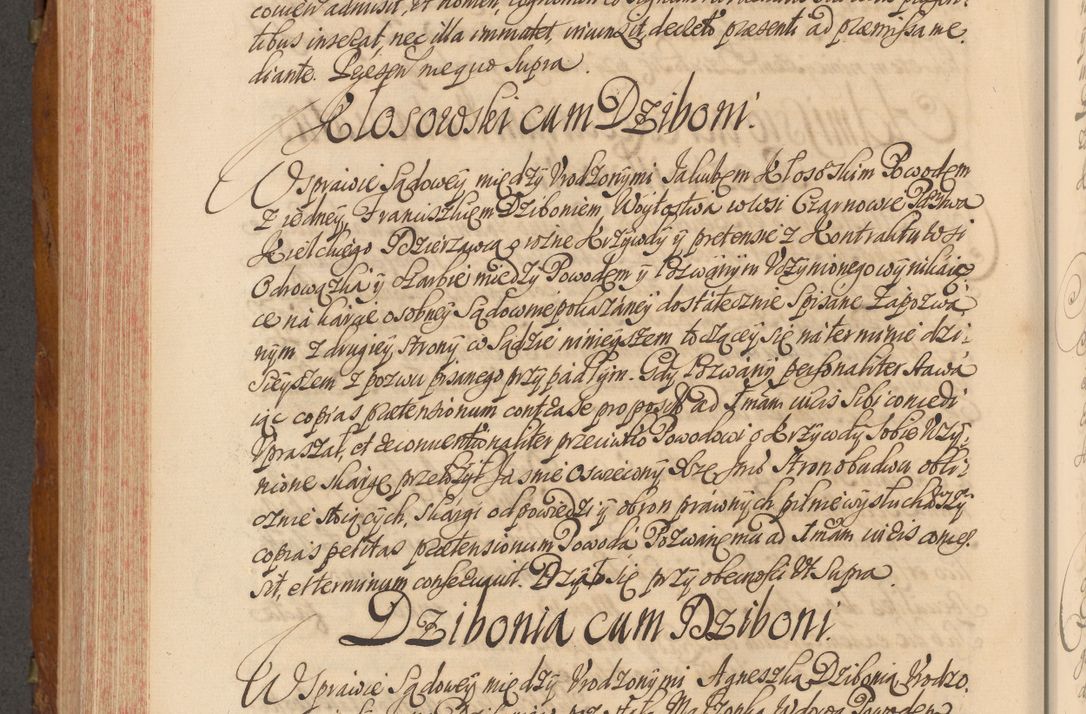 tibus inserat, nec illa immutet, iniunxit, decreto præsenti ad præmissa me:
diante. Præsen: me quo Supra.
Klosowski cum Dziboni.
W Sprawie Sądowey między Vrodzonymi Jakubem Kłososkim Powodem
z iedney, Franciszkiem Dziboniem, Woytostwa wewsi Czarnowie Państwa
Kielckiego Dzierzawcą o rożne Krzywdy y pretensie z Kontraktu wsi
Odrowązka y oKarbie między Powodem y Pozwanym Vczynionego wynikaią
ce na kargę osobney Sądownie pokazaney dostatecznie Spisane Zapozwa
nym z drugiey strony w Sądzie ninieyszem toczącey się na terminie dzi:
sieyszem z pozwu pisanego przypadłym. Gdy Pozwany personaliter stawa
iąc copias prætensionum contra se proposit: ad Imam vicis sibi concedi
Vpraszał, et reconventionaliter przeciwko Powodowi o Krzywdy sobie Vczy:
nione skargę przełożył Jaśnie Oswiecony Xżę Jmć Stron obudwu obli:
cznie stoiących, skargi odpowiedzi y obron prawnych pilnie wysłuchawszy
copias petitas prætensionum Powoda Pozwanemu ad Imam vicis conces
sit, et terminum conservavit. Działo się przy obecności Vt Supra.
Dzibonia cum Dziboni.
W Sprawie Sądowey między Vrodzonymi Agneszką Dzibonią Vrodzo.